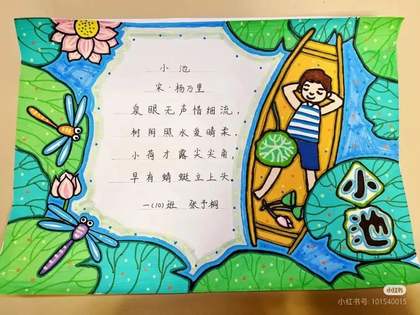 小池
宋·杨万里
泉眼无声惜细流，
树阴照水爱晴柔。
小荷才露尖尖角，
早有蜻蜓立上头。
一(10)班
小池
小红书
小红书号: 101540015